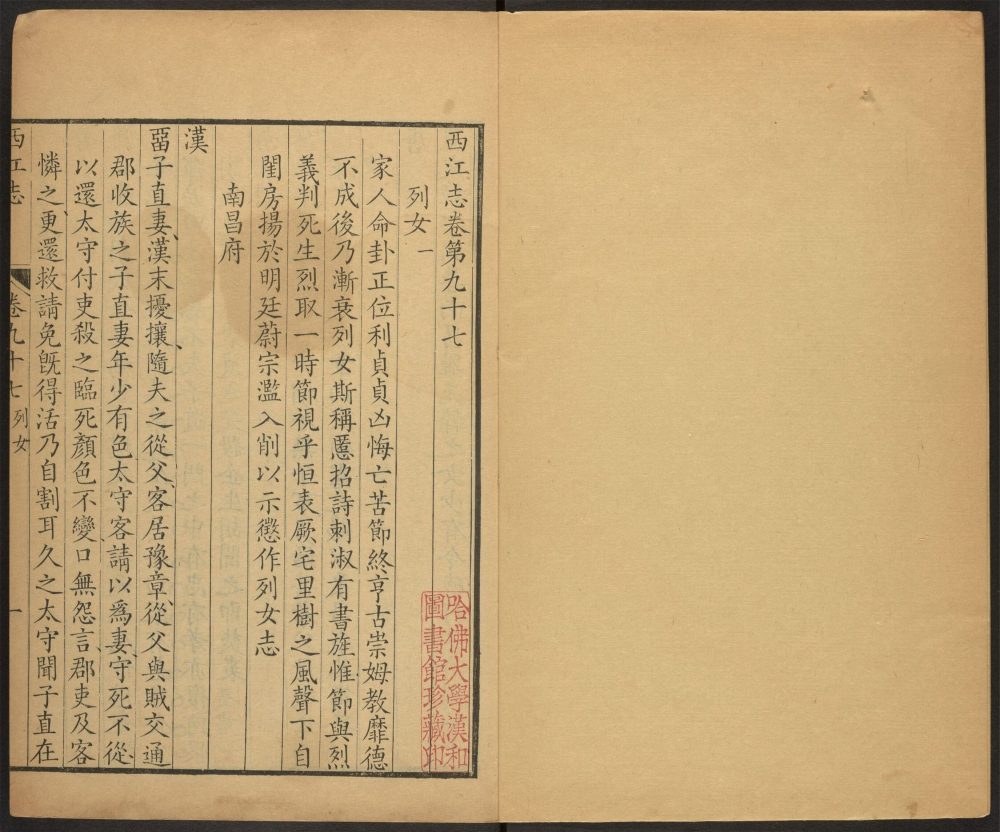 西江志卷第九十七
列女一
家人命卦正位利貞貞凶悔亡苦節終亨古崇姆教靡德
不成後乃漸衰列女斯稱慝招詩刺淑有書旌惟節與烈
義判死生烈取一時節視乎恒表厥宅里樹之風聲下自
閨房揚於明廷蔚宗濫入削以示懲作列女志
南昌府
漢
留子直妻漢末擾攘隨夫之從父客居豫章從父與賊交通
郡收族之子直妻年少有色太守客請以爲妻守死不從
以還太守付吏殺之臨死顏色不變口無怨言郡吏及客
憐之更還救請免旣得活乃自割耳久之太守聞子直在
西江志
卷九十七 列女
一
哈佛大學漢和
圖書館珍藏印